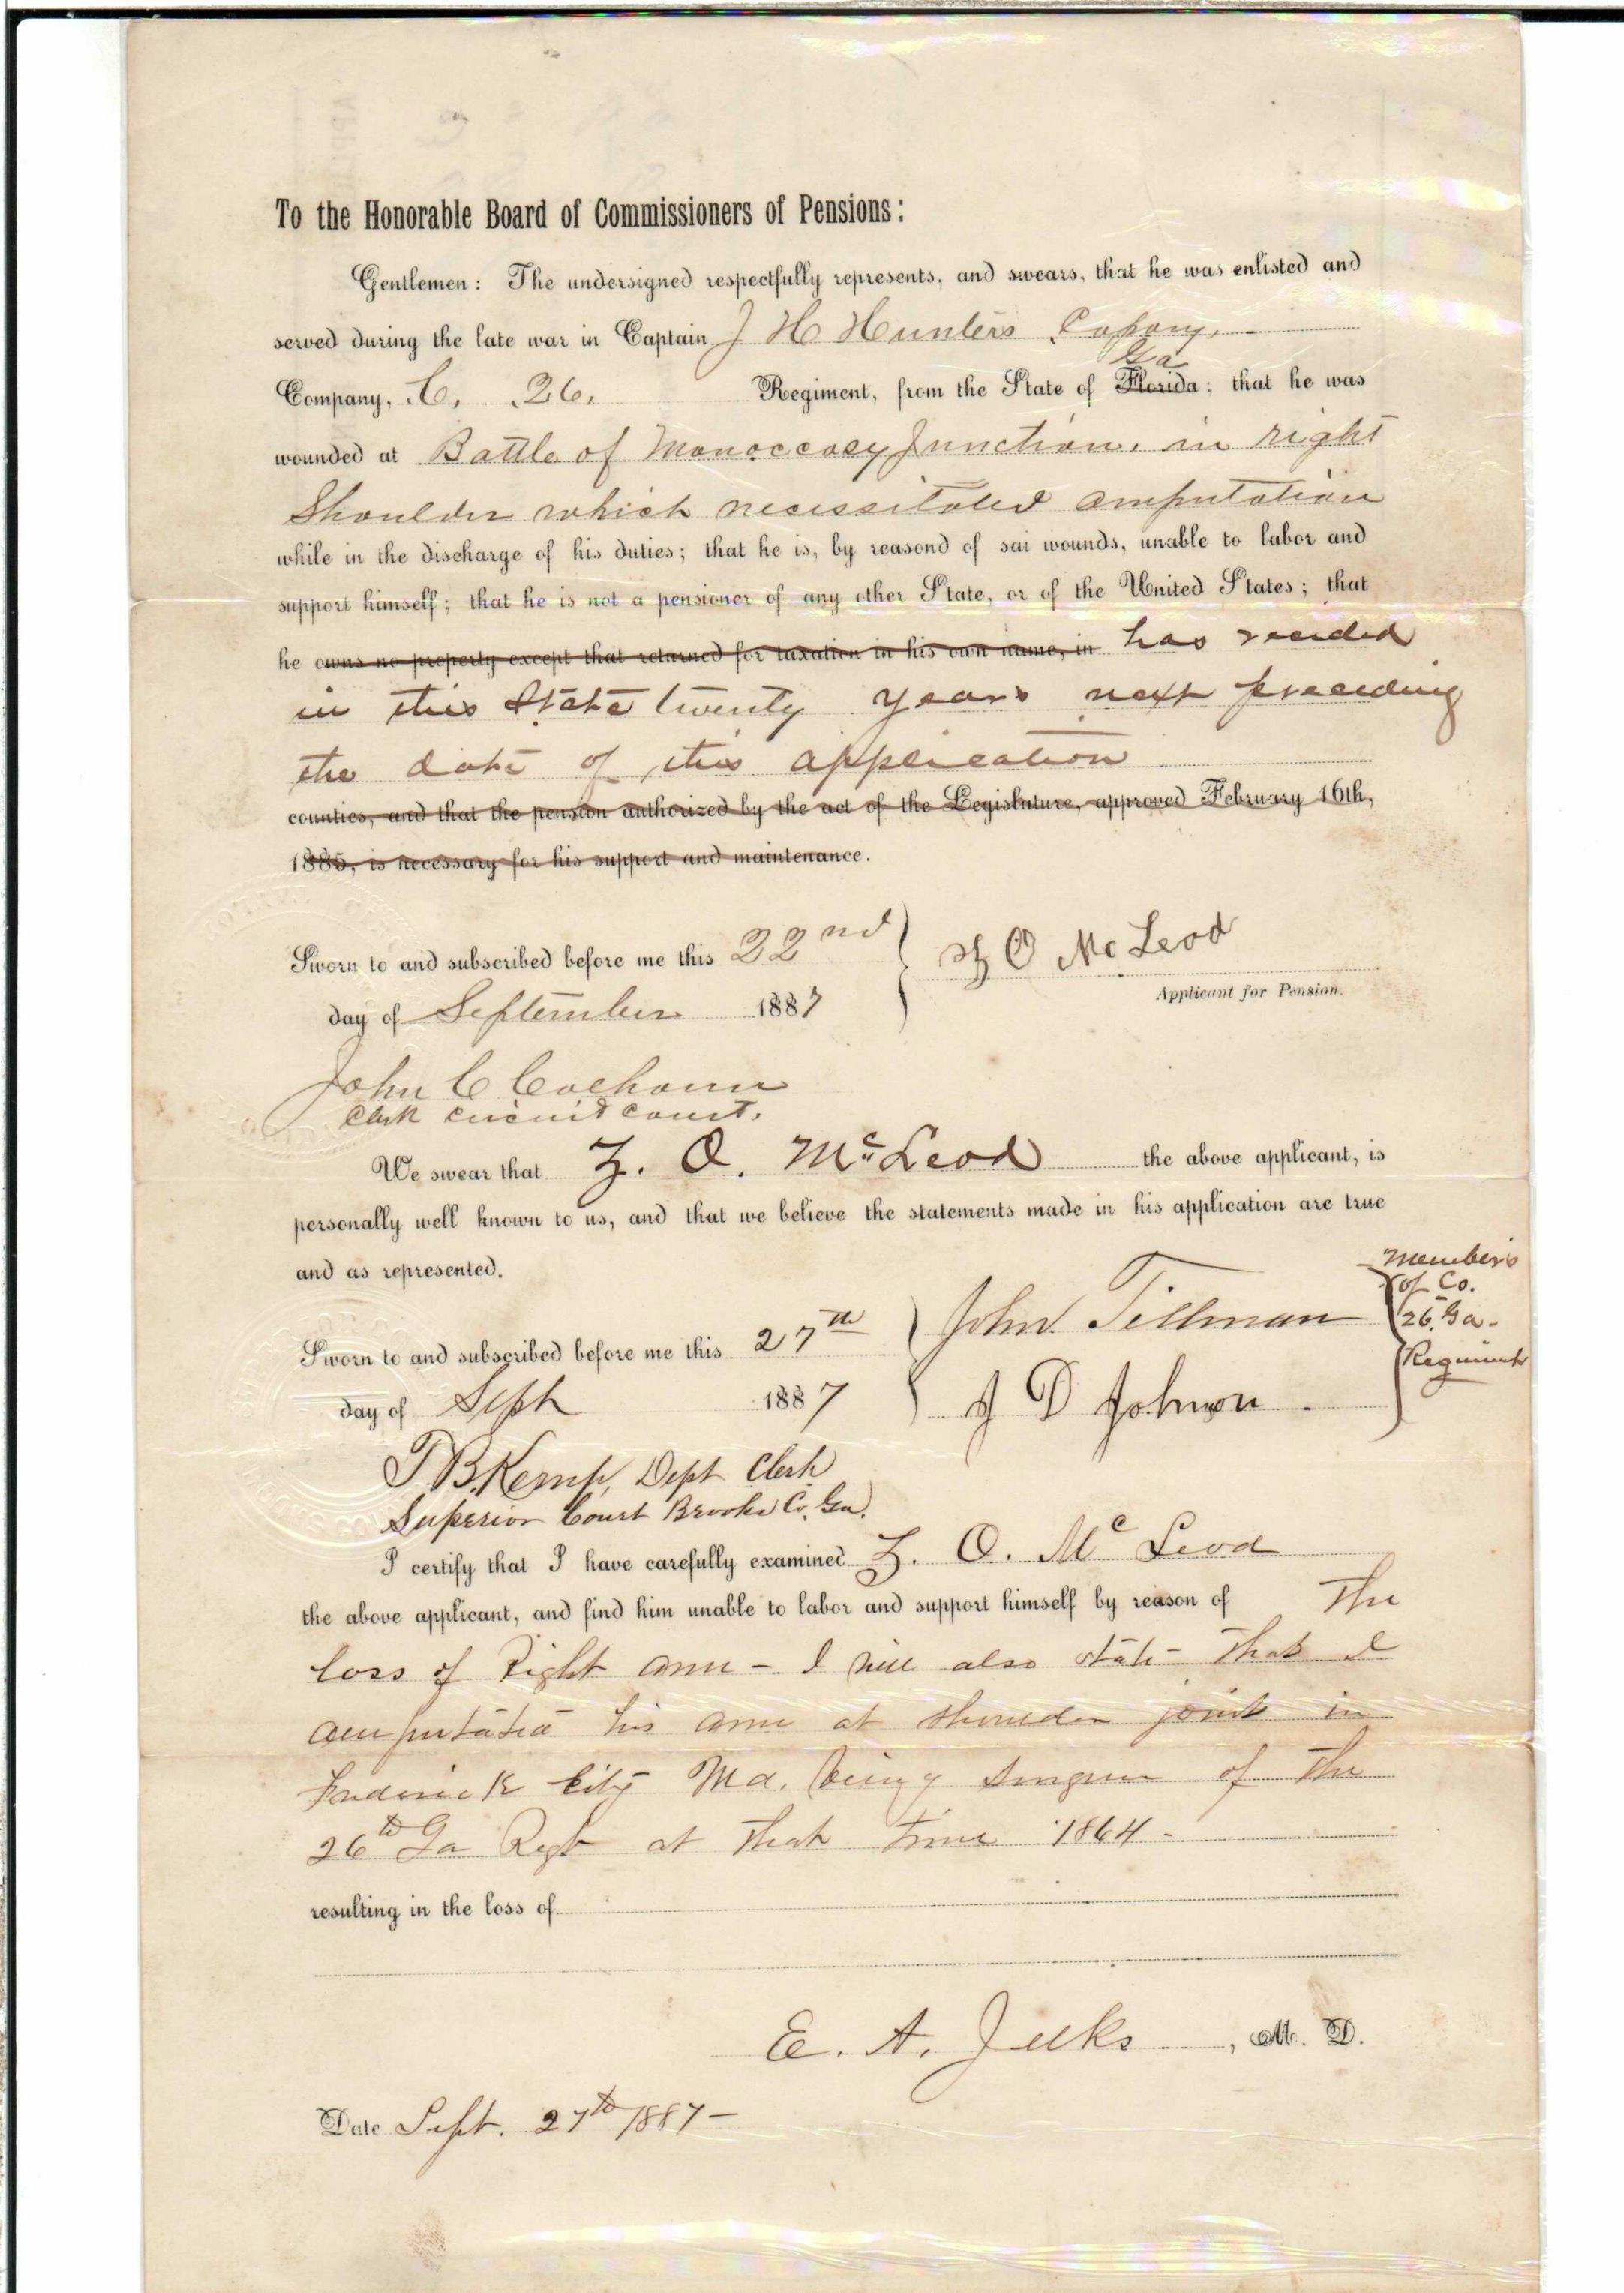 To the Honorable Board of Commissioners of Pensions:
Gentlemen: The undersigned respectfully represents, and swears, that he was enlisted and
served during the late war in Captain J H Hunters Copany,
Ga
Company, C, 26, Regiment, from the State of Florida; that he was
wounded at Battle of Monoccacy Junction, in right
Shoulder which necessitated amputation
while in the discharge of his duties; that he is, by reasond of sai wounds, unable to labor and
support himself; that he is not a pensioner of any other State, or of the United States; that
he owns no property except that returned for taxation in his own name, in has resided
in this State twenty years next preceding
the date of this application
counties, and that the pension authorized by the act of the Legislature, approved February 16th,
1885, is necessary for his support and maintenance.
Sworn to and subscribed before me this 22nd
Z O McLeod
Applicant for Pension.
day of September 1887
John C Calhoun
Clerk Circuit Court.
We swear that Z. O. McLeod the above applicant, is
personally well known to us, and that we believe the statements made in his application are true
and as represented.
Members
of Co.
26, Ga.
Regiment
John Tillman
Sworn to and subscribed before me this 27th
day of Sept 1887
J D Johnson
T B. Kemp, Dept Clerk
Superior Court Brooks Co, Ga.
I certify that I have carefully examined Z. O. McLeod
the above applicant, and find him unable to labor and support himself by reason of The
loss of Right arm - I will also state that I
amputated his arm at shoulder joint in
Frederick City Md. being surgeon of the
26th Ga Regt at that time 1864 -
resulting in the loss of
E. A. Jelks, M. D.
Date Sept. 27th 1887 -